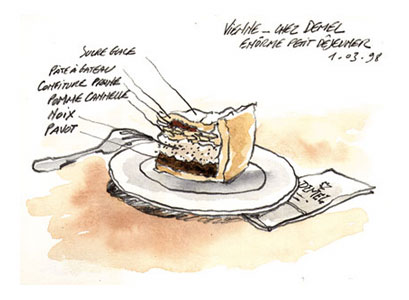 VIENNE _ CHEZ DEMEL
ENORME PETIT DÉJEUNER
1.03.98
SUCRE GLACE
PÂTE À GATEAU
CONFITURE PRUNE
POMME CANNELLE
NOIX
PAVOT
DEMEL